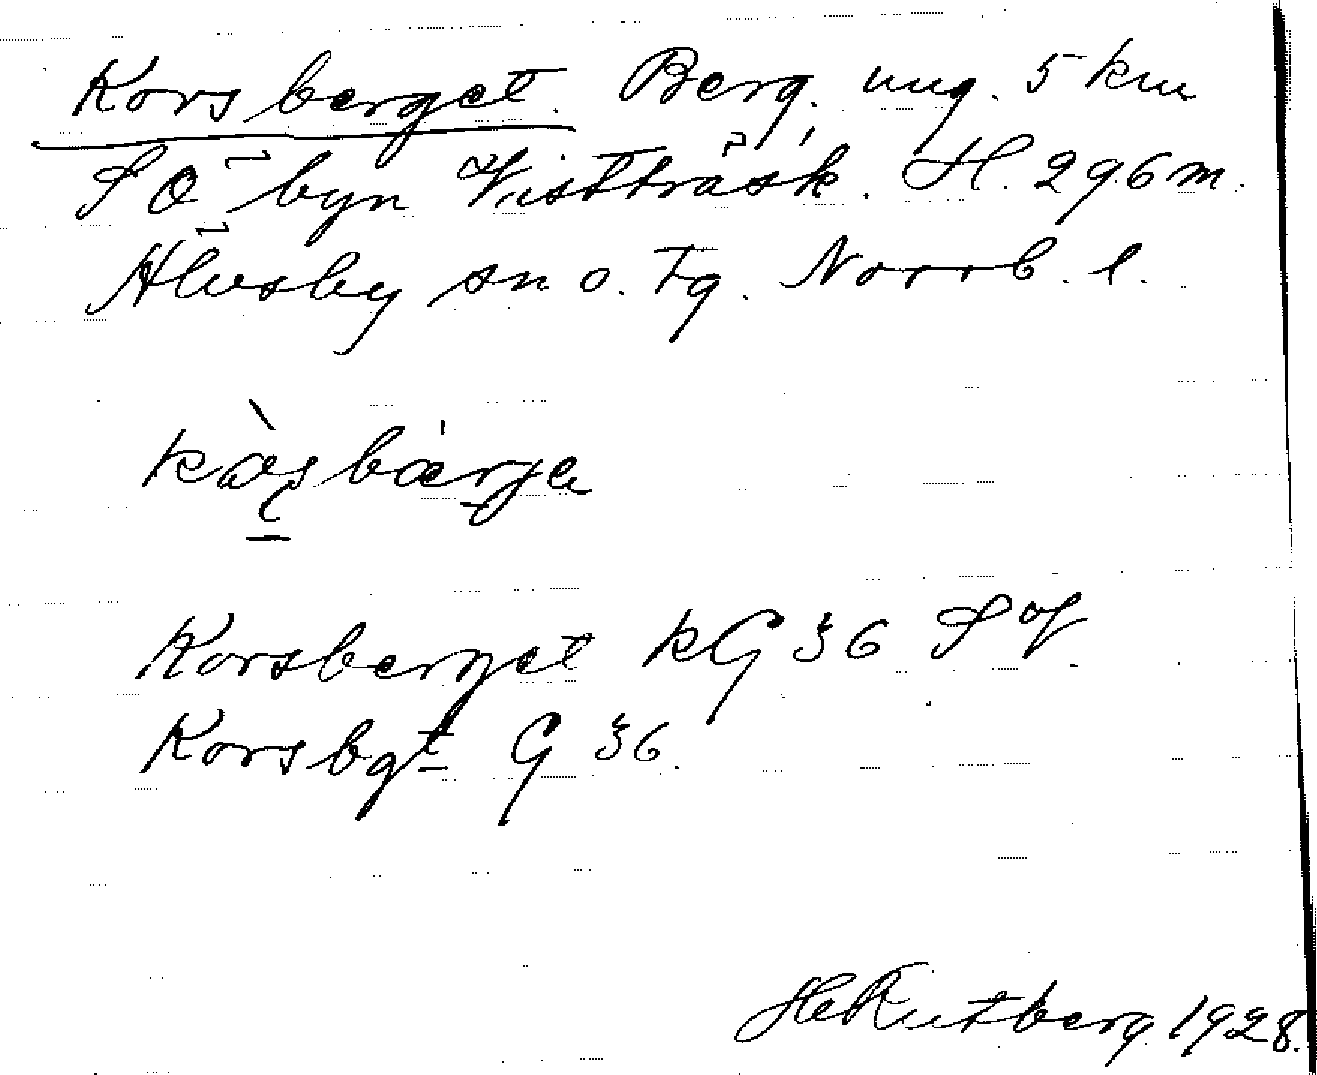 Korsberget. Berg. ung. 5 km
SÖ byn Vistträsk. H. 296 m.
Älvsby sn o. tg. Norrb. l.
Korsberget kG 36 Söf.
Korsbgt G 36.
H Rutberg 1928.